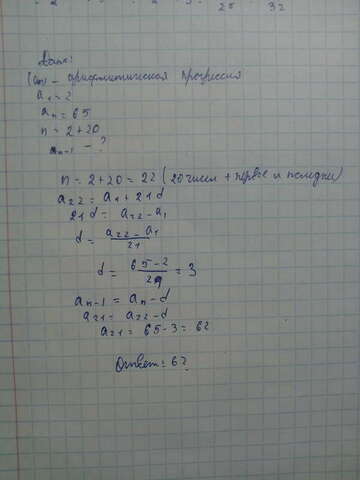 Дано:
(aₙ) - арифметическая прогрессия
a₁ = 2
aₙ = 65
n = 2+20
aₙ₋₁ - ?
n = 2+20 = 22 (20 чисел + первое и последнее)
a₂₂ = a₁ + 21d
21d = a₂₂ - a₁
d = (a₂₂ - a₁)/21
d = (65-2)/21 = 3
aₙ₋₁ = aₙ - d
a₂₁ = a₂₂ - d
a₂₁ = 65-3 = 62
Ответ: 62